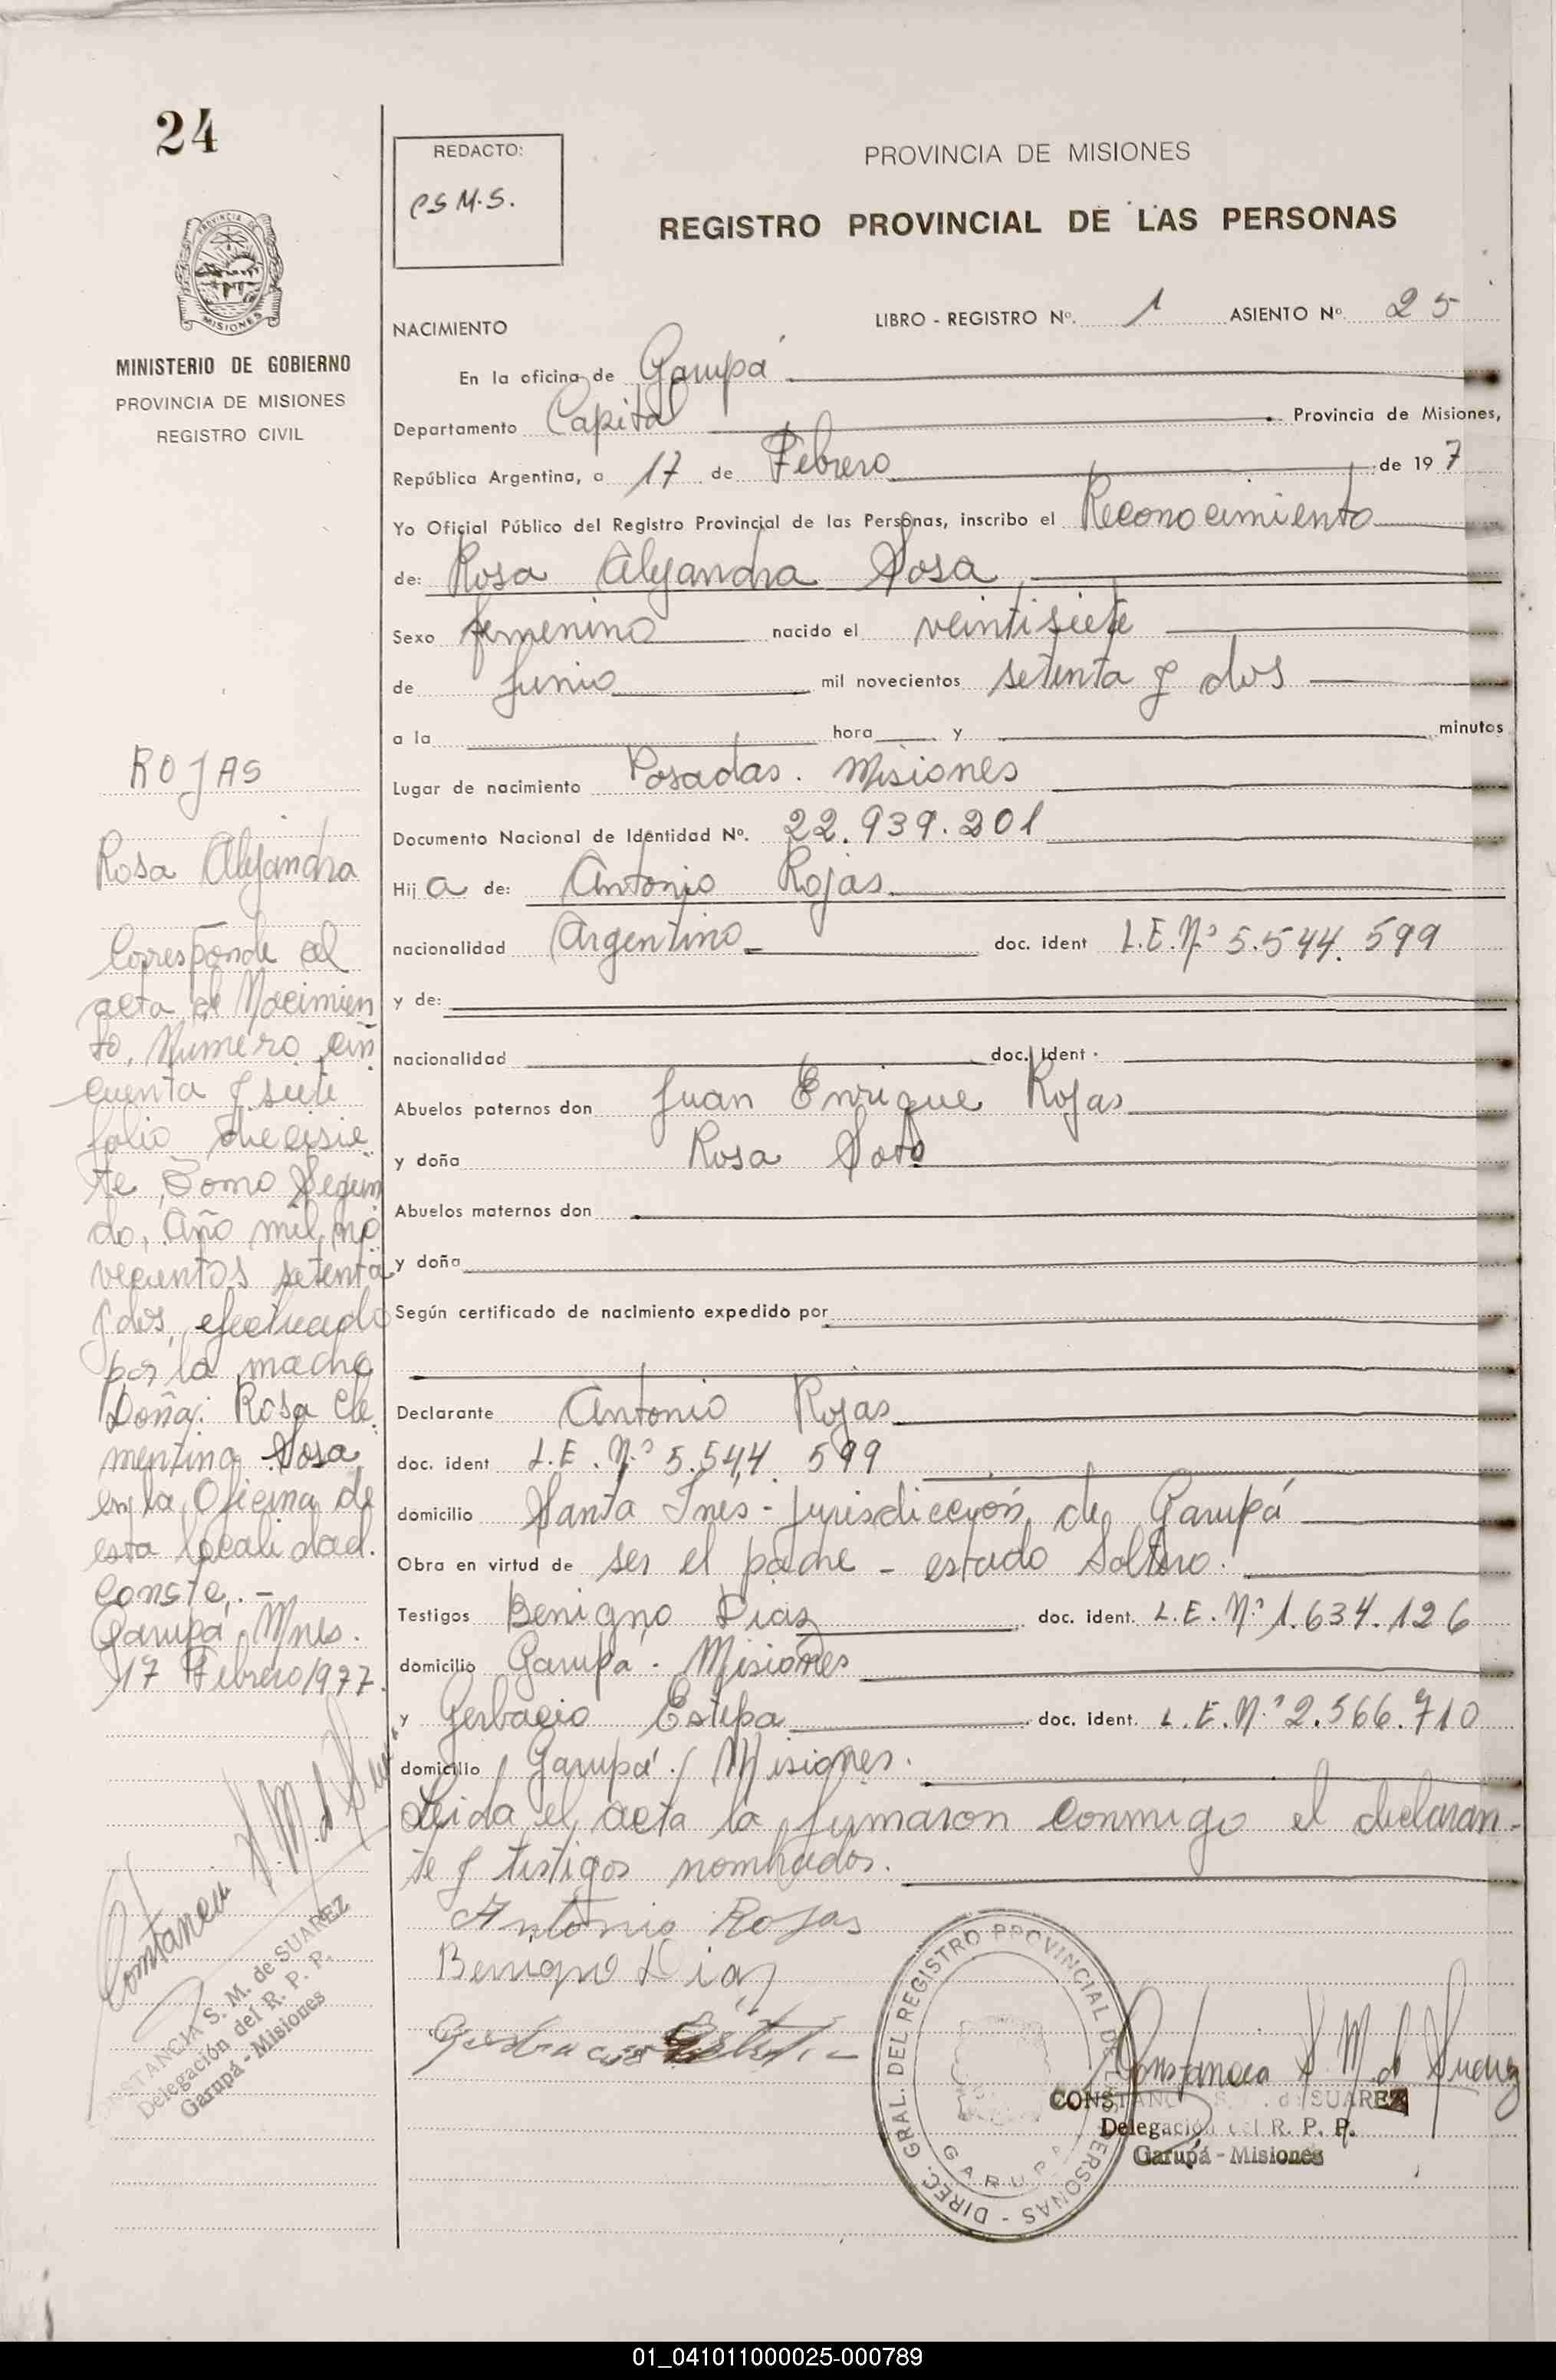 24
REDACTO:
CSM.S.
PROVINCIA DE MISIONES
REGISTRO PROVINCIAL DE LAS PERSONAS
PROVINCIA DE
MISIONES
MINISTERIO DE GOBIERNO
PROVINCIA DE MISIONES
REGISTRO CIVIL
LIBRO - REGISTRO Nº. 1 ASIENTO Nº. 25
NACIMIENTO
En la oficina de Garupá
Departamento Capital Provincia de Misiones,
República Argentina, a 17 de Febrero de 197
Yo Oficial Público del Registro Provincial de las Personas, inscribo el Reconocimiento
de: Rosa Alejandra Sosa
Sexo femenino nacido el veintisiete
de Junio mil novecientos setenta y dos
a la hora y minutos
Lugar de nacimiento Posadas. Misiones
Documento Nacional de Identidad Nº. 22.939.201
Hij a de: Antonio Rojas
nacionalidad Argentino doc. ident L.E.Nº 5.544.599
y de:
nacionalidad doc. ident.
Abuelos paternos don Juan Enrique Rojas
y doña Rosa Soto
Abuelos maternos don
y doña
Según certificado de nacimiento expedido por
Declarante Antonio Rojas
doc. ident L.E.Nº 5.544.599
domicilio Santa Inés - Jurisdicción de Garupá
Obra en virtud de ser el padre - estado Soltero.
Testigos Benigno Diaz doc. ident. L.E.Nº 1.634.126
domicilio Garupá - Misiones
y Gerbacio Estepa doc. ident. L.E.Nº 2.566.710
domicilio Garupá / Misiones.
Leida el acta la firmaron conmigo el declaran-
te y testigos nombrados.
Antonio Rojas
Benigno Diaz
ROJAS
Rosa Alejandra
Corresponde al
acta de Nacimien
to, Número cin
cuenta y siete
folio diecisie
te, Tomo Segun
do, Año mil no
vecientos setenta
y dos, efectuado
por la madre
Doña: Rosa Cle
mentina Sosa
en la Oficina de
esta localidad.
Conste. -
Garupá Mnes.
17 Febrero 1977.
Constancia S. M. d Suarez
CONSTANCIA S. M. de SUAREZ
Delegación del R. P. P.
Garupá - Misiones
DIREC. GRAL. DEL REGISTRO PROVINCIAL DE LAS PERSONAS -
GARUPA
Constancia S. M. d Suarez
CONSTANC S. . d SUAREZ
Delegación del R. P. P.
Garupá - Misiones
01_041011000025-000789